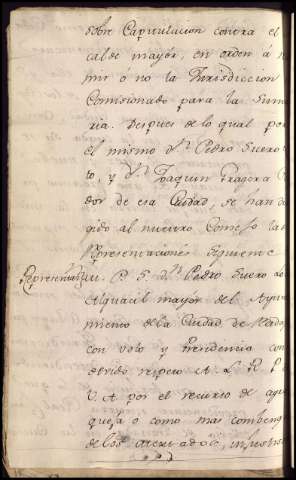 sobre Capitulacion contra el
calde mayor, en orden á
mir o no la Jurisdiccion
Comisionado para la Suma
ria. Despues de lo qual po
el mismo Dn. Pedro Suero
to, y Dn. Joaquin Fragora
dor de esa Ciudad, se han di
gido al nuestro Consejo las
Representaciones siguiente
Representazn. S. Dn. Pedro Suero de
Alguacil mayor del Ayun
miento de la Ciudad de
con voto y Presidencia con
devido respeto A. L. R. P.
V. A. por el recurso de
quexa o como mas combeng
de los